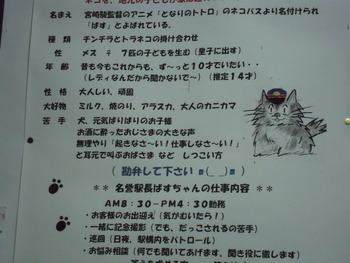 名まえ 宮崎駿監督のアニメ「となりのトトロ」のネコバスより名付けられ
「ばす」とよばれている。
種類 チンチラとトラネコの掛け合わせ
性 メス ♀ 7匹の子どもを生む（里子に出す）
年齢 昔も今もこれからも、ず～っと10才でいたい・・
（レディなんだから聞かないで～）（推定14才）
性格 大人しい、頑固
大好物 ミルク、焼のり、アラスカ、大人のカニカマ
苦手 犬、元気ばりばりのお子様
お酒に酔ったおじさまの大きな声
無理やり「起きなさ～い！仕事しなさ～い！」
と耳元で叫ぶおばさま など しつこい方
（ 勘弁して下さい m(_ _)m ）
＊＊ 名誉駅長ばすちゃんの仕事内容 ＊＊
AM8：30－PM4：30勤務
・お客様のお出迎え（気がむいたら！）
・一緒に記念撮影（でも、だっこされるの苦手）
・巡回（日夜、駅構内をパトロール）
・お悩み相談（何でも聞いてあげます。聞き役に徹します）